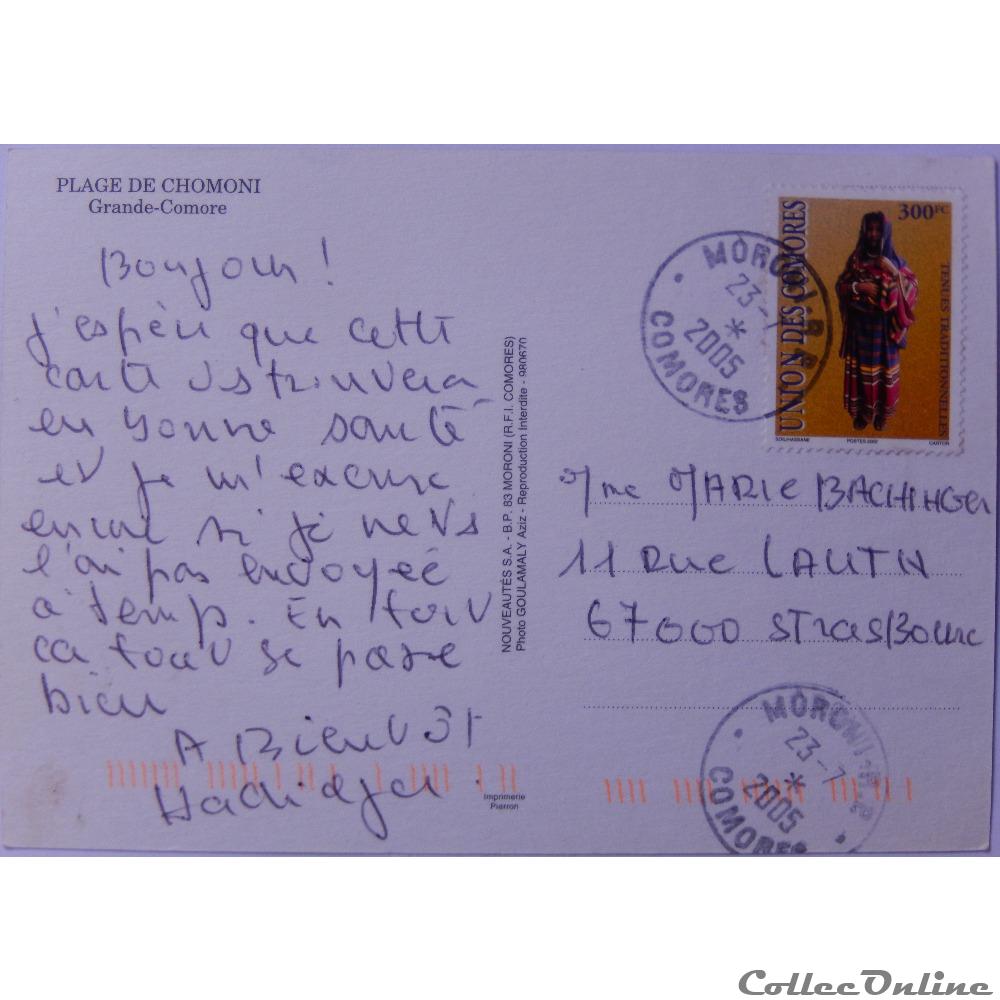 PLAGE DE CHOMONI
Grande-Comore
Bonjour !
J'espère que cette
carte vs trouvera
en bonne santé
et je m'excuse
encore si je ne vs
l'ai pas envoyée
a temp. En tout
ca tout se passe
bien
A Bientôt
NOUVEAUTÉS S.A. - B.P. 83 MORONI (R.F.I. COMORES)
Photo GOULAMALY Aziz - Reproduction Interdite - 980670
Imprimerie
Pierron
UNION DES COMORES
300FC
TENUES TRADITIONNELLES
POSTES 2002
CARTOR
MORONI R.P.
23-7
2005
COMORES
Mme MARIE BACHINGER
11 Rue LAUTH
67000 STRASBOURG
MORONI R.P.
23-7
2005
COMORES
CollecOnline